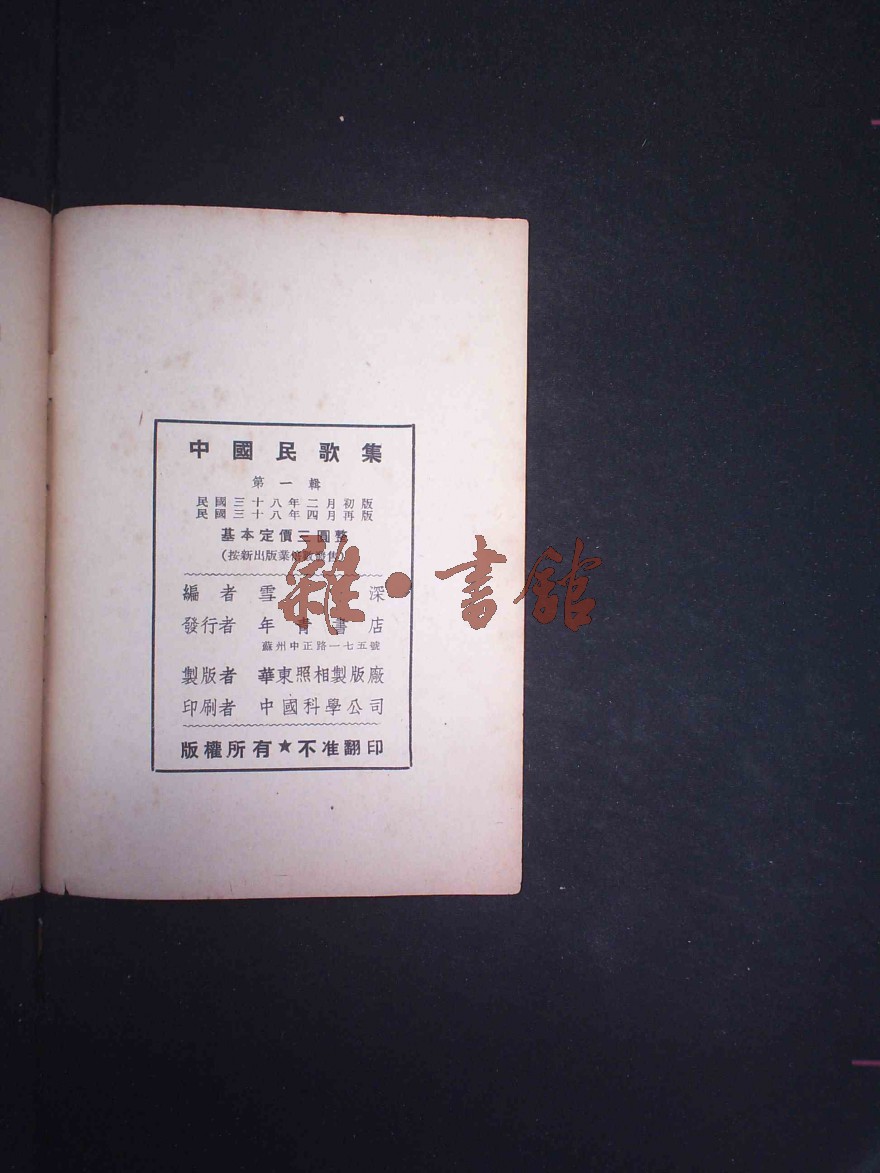 中國民歌集
第一輯
民國三十八年二月初版
民國三十八年四月再版
基本定價三圓整
(按新出版業倍數發售)
編者 雪深
發行者 年青書店
蘇州中正路一七五號
製版者 華東照相製版廠
印刷者 中國科學公司
版權所有★不准翻印
雜·書館